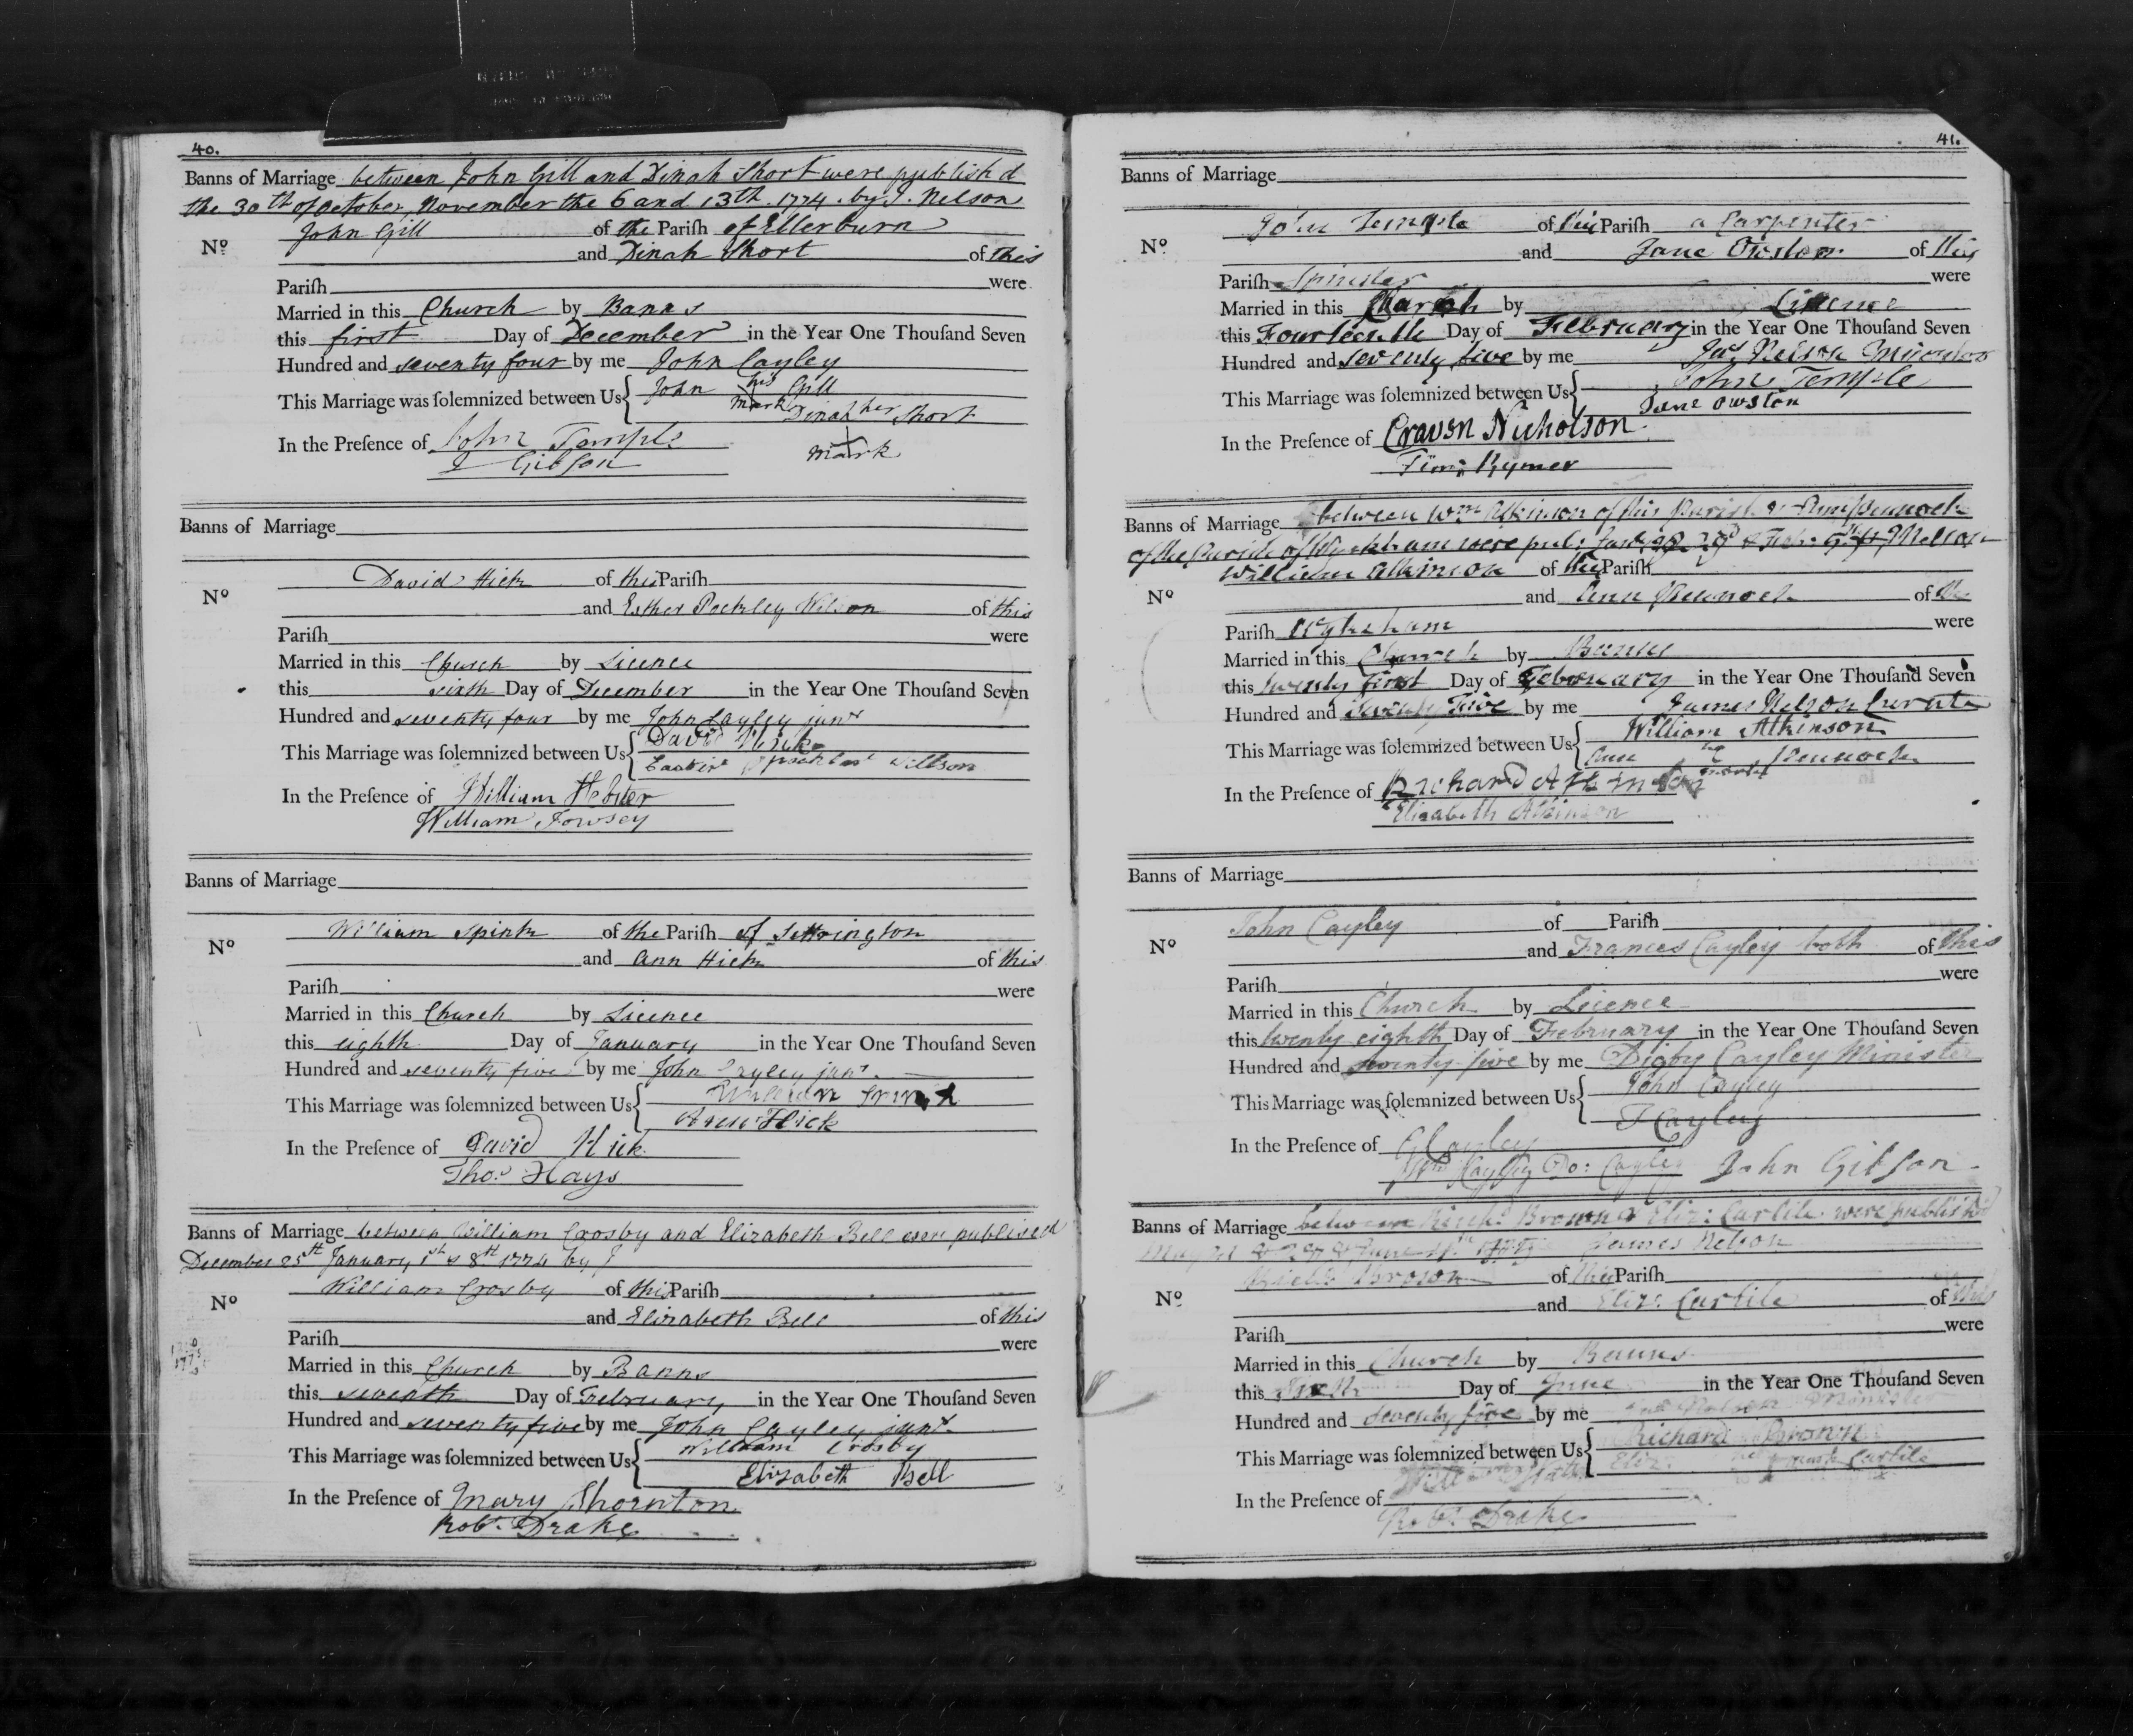 40.
Banns of Marriage between John Gill and Dinah Short were publish'd
the 30th of October, November the 6 and 13th. 1774. by J. Nelson
John Gill of the Parish of Ellerburn
No
and Dinah Short of this
Parish were
Married in this Church by Banns
this first Day of December in the Year One Thousand Seven
Hundred and seventy four by me John Cayley
This Marriage was solemnized between Us John his Gill
mark Dinah her Short
In the Presence of John Temple
mark
J Gibson
Banns of Marriage
David Hick of this Parish
No
and Esther Pockley Wilson of this
Parish were
Married in this Church by Licence
this sixth Day of December in the Year One Thousand Seven
Hundred and seventy four by me John Cayley junr
This Marriage was solemnized between Us David Hick
Willson
In the Presence of William Hebster
William Towsey
Banns of Marriage
William Spink of the Parish of Settrington
No
and Ann Hick of this
Parish were
Married in this Church by Licence
this eighth Day of January in the Year One Thousand Seven
Hundred and seventy five by me John Cayley junr.
This Marriage was solemnized between Us William Spink
Ann Hick
In the Presence of David Hick
Thos. Hays
Banns of Marriage between William Crosby and Elizabeth Bell were published
December 25th January 1st & 8th 1774 by J
William Crosby of this Parish
No
and Elizabeth Bell of this
Parish were
Married in this Church by Banns
this seventh Day of February in the Year One Thousand Seven
Hundred and seventy five by me John Cayley junr.
This Marriage was solemnized between Us William Crosby
Elizabeth Bell
In the Presence of Mary Thornton
Robt. Drake
41.
Banns of Marriage
John Temple of this Parish a Carpenter
No
and Jane Owston of this
Parish Spinster were
Married in this Church by Licence
this Fourteenth Day of February in the Year One Thousand Seven
Hundred and seventy five by me Jas. Nelson Minister
This Marriage was solemnized between Us John Temple
Jane Owston
In the Presence of Craven Nicholson
Timy Rymer
Banns of Marriage between Wm Atkinson of this Parish & Ann Pennock
of the Parish of Wykeham were pub: Nelson
William Atkinson of this Parish
No
and Ann Pennock of the
Parish Wykeham were
Married in this Church by Banns
this twenty first Day of February in the Year One Thousand Seven
Hundred and Seventy Five by me James Nelson Curate
This Marriage was solemnized between Us William Atkinson
Ann Pennock
mark
In the Presence of Richard Atkinson
Elizabeth Atkinson
Banns of Marriage
John Cayley of Parish
No
and Frances Cayley both of this
Parish were
Married in this Church by Licence
this twenty eighth Day of February in the Year One Thousand Seven
Hundred and seventy five by me Digby Cayley Minister
This Marriage was solemnized between Us John Cayley
F Cayley
In the Presence of Cayley
Cayley Do: Cayley John Gibson
Banns of Marriage between Richd. Brown & Eliz: Carlile were published
May James Nelson
Richd Brown of this Parish
No
and Eliz: Carlile of this
Parish were
Married in this Church by Banns
this Sixth Day of June in the Year One Thousand Seven
Hundred and seventy five by me Jas Nelson Minister
This Marriage was solemnized between Us Richard Brown
Eliz: mark Carlile
In the Presence of
Robt. Drake